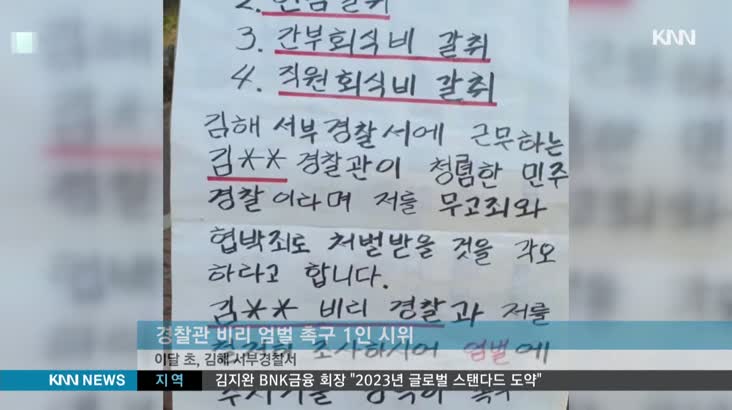 2. 현금갈취
KNN
3. 간부회식비 갈취
4. 직원회식비 갈취
김해 서부경찰서에 근무하는
김** 경찰관이 청렴한 민주
경찰이다며 저를 무고죄와
협박죄도 처벌받을 것을 각오
하라고 합니다.
김** 비리 경찰과 저를
조사하시어 엄벌에
경찰관 비리 엄벌 촉구 1인 시위
이달 초, 김해 서부경찰서
KNN NEWS
지역
김지완 BNK금융 회장 "2023년 글로벌 스탠다드 도약"